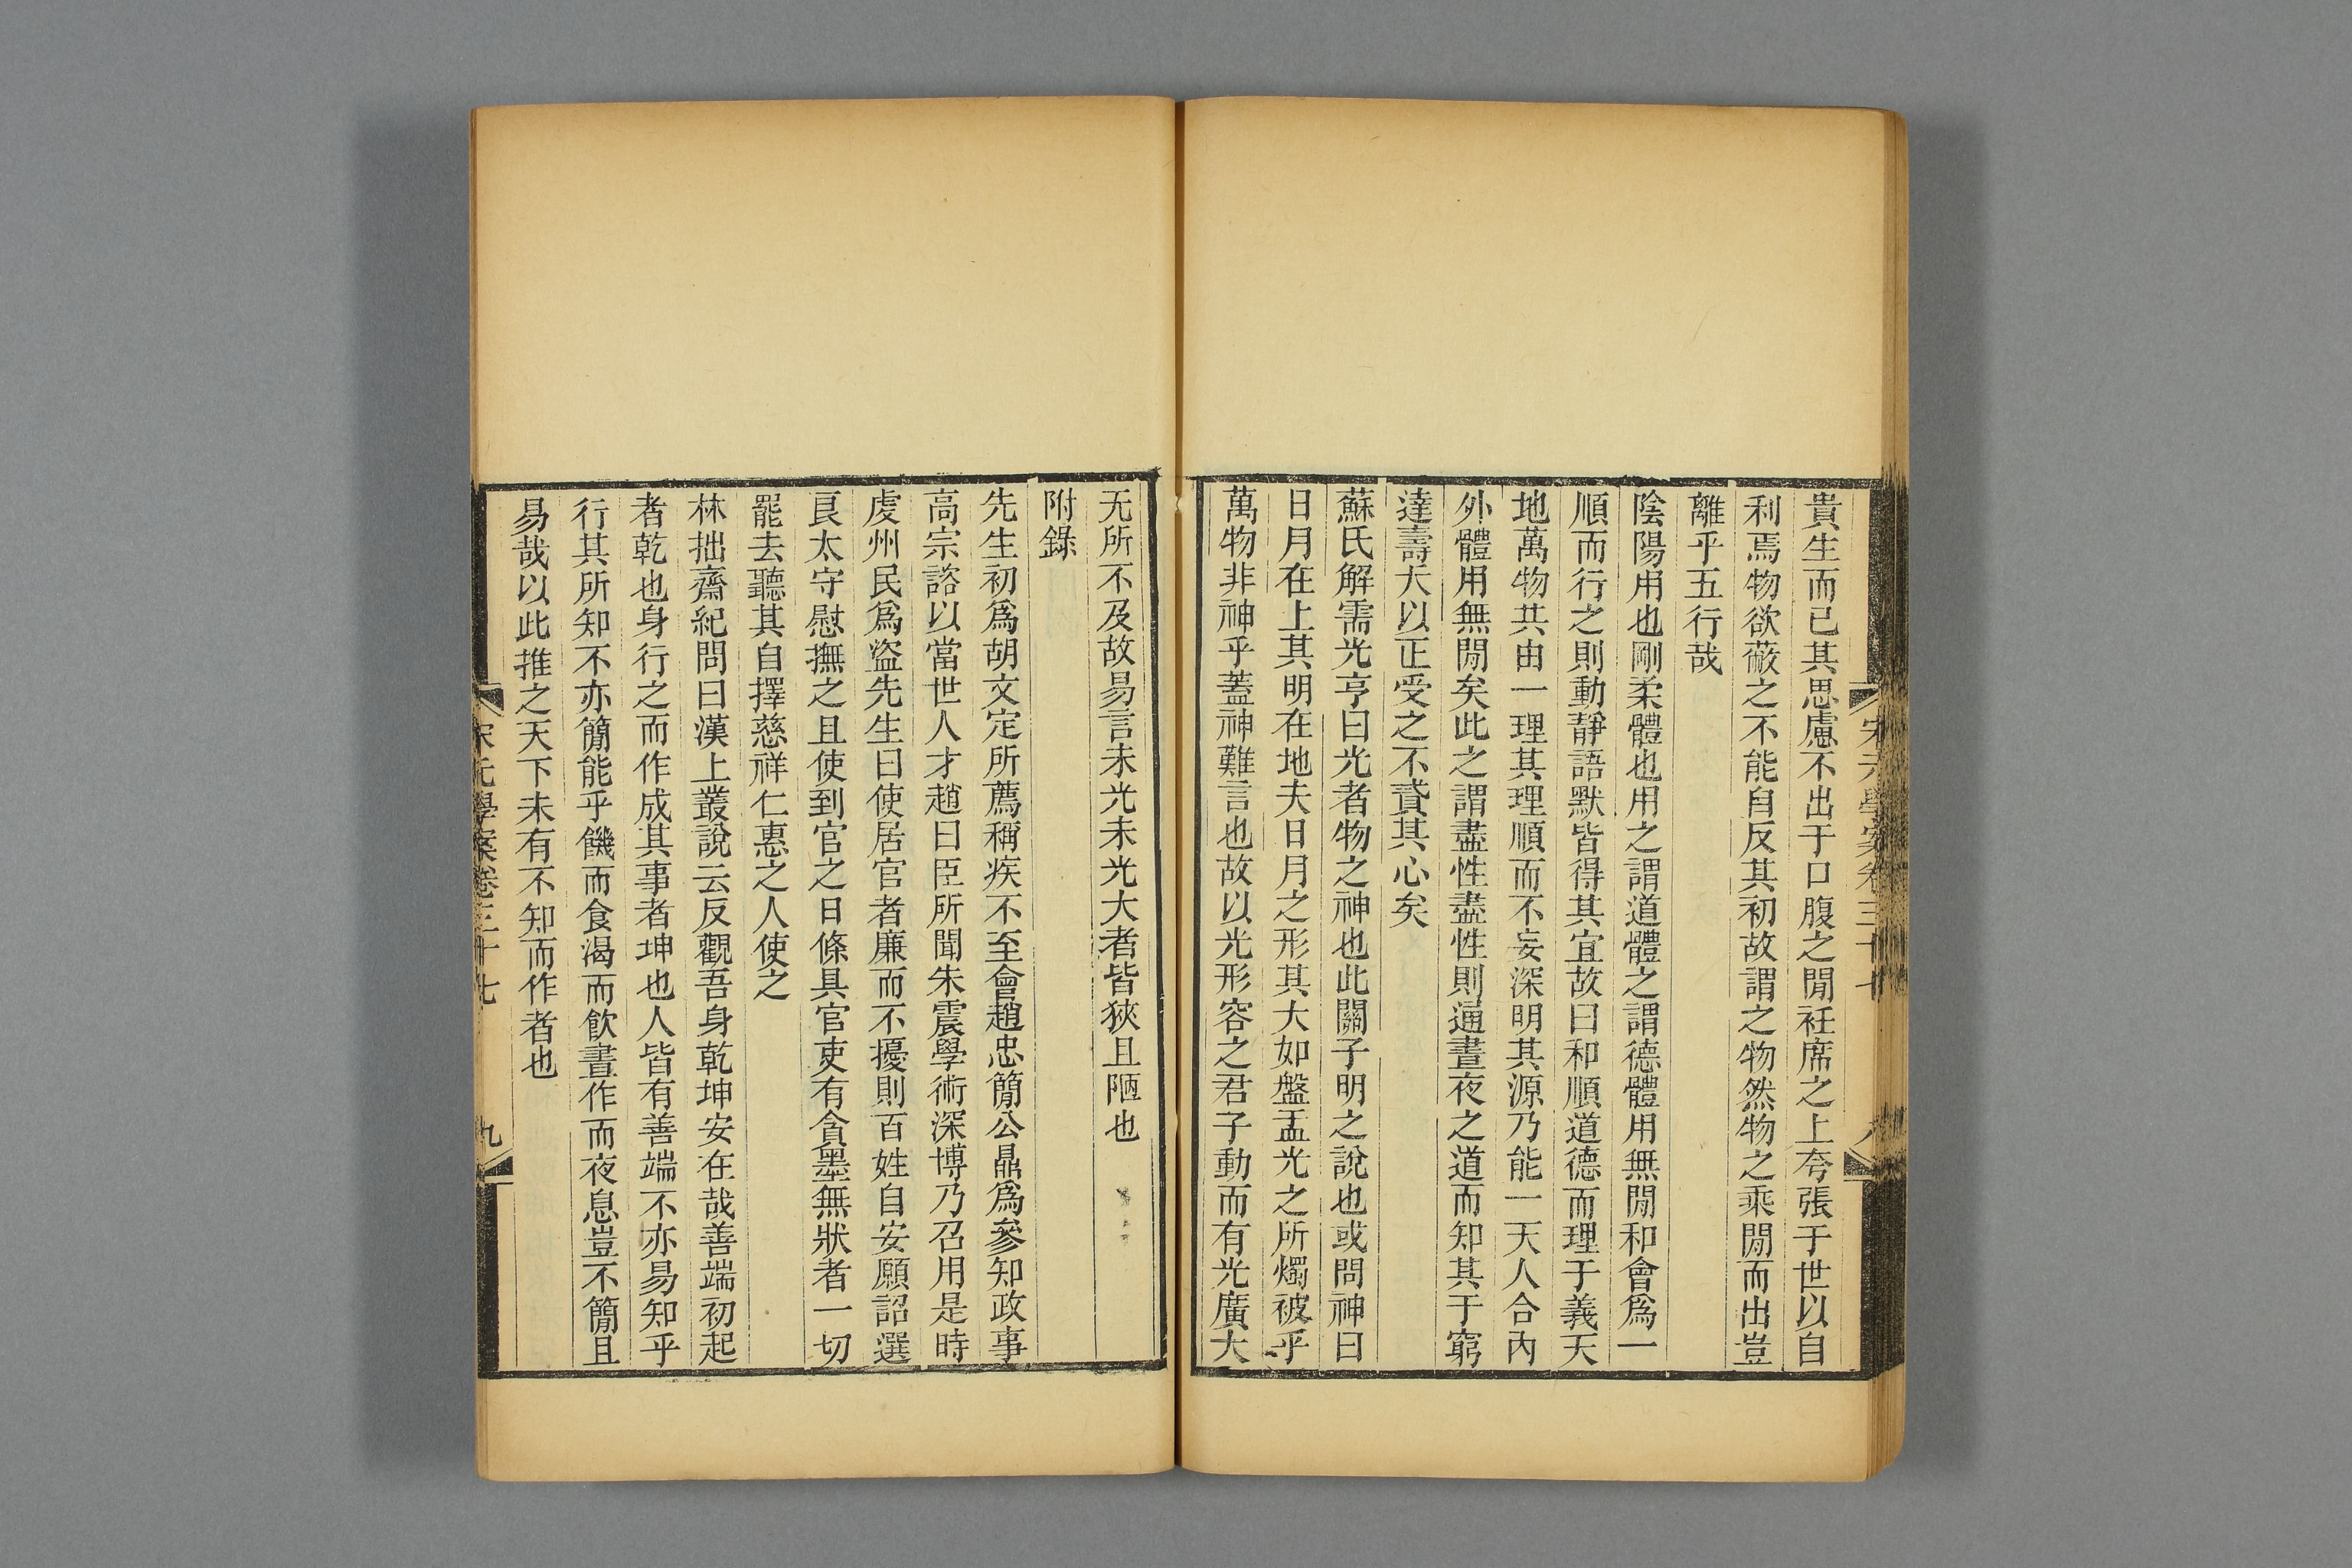 宋元學案卷三十七
八
貴生而已其思慮不出于口腹之閒衽席之上夸張于世以自
利焉物欲蔽之不能自反其初故謂之物然物之乘閒而出豈
離乎五行哉
陰陽用也剛柔體也用之謂道體之謂德體用無閒和會爲一
順而行之則動靜語默皆得其宜故曰和順道德而理于義天
地萬物共由一理其理順而不妄深明其源乃能一天人合內
外體用無閒矣此之謂盡性盡性則通晝夜之道而知其于窮
達壽夭以正受之不貳其心矣
蘇氏解需光亨曰光者物之神也此關子明之說也或問神曰
日月在上其明在地夫日月之形其大如盤盂光之所燭被乎
萬物非神乎蓋神難言也故以光形容之君子動而有光廣大
无所不及故易言未光未光大者皆狹且陋也
附錄
先生初爲胡文定所薦稱疾不至會趙忠簡公鼎爲參知政事
高宗諮以當世人才趙曰臣所聞朱震學術深博乃召用是時
虔州民爲盜先生曰使居官者廉而不擾則百姓自安願詔選
良太守慰撫之且使到官之日條具官吏有貪墨無狀者一切
罷去聽其自擇慈祥仁惠之人使之
林拙齋紀問曰漢上叢說云反觀吾身乾坤安在哉善端初起
者乾也身行之而作成其事者坤也人皆有善端不亦易知乎
行其所知不亦簡能乎饑而食渴而飮晝作而夜息豈不簡且
易哉以此推之天下未有不知而作者也
宋元學案卷三十七
九